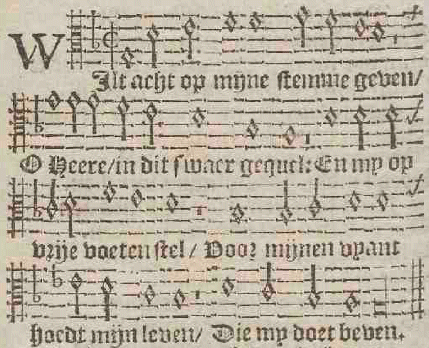 WIlt acht op mijne stemme geven/
O Heere/in dit swaer gequel: En my op
vrije voeten stel / Voor mijnen vyant
hoedt mijn leven/ Die my doet beven.